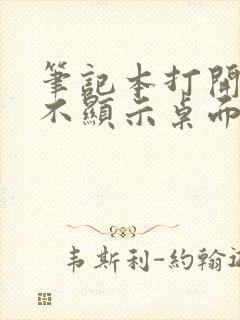 筆記本打開
不顯示桌面
韋斯利-約翰